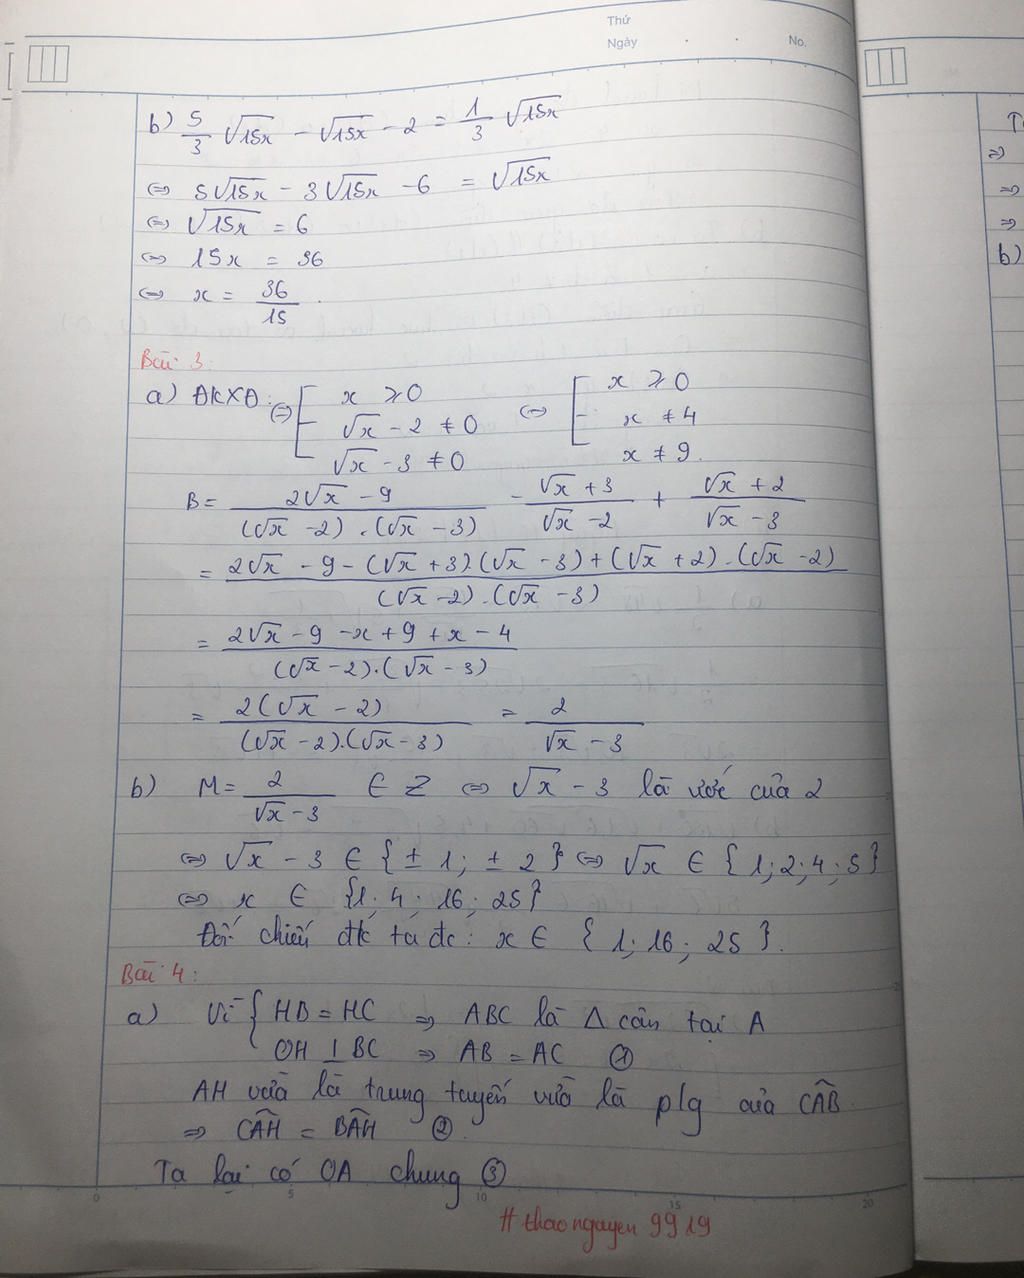 Thứ
Ngày . . No.
b) 5/3 √15x - √15x - 2 = 1/3 √15x
⇔ 5√15x - 3√15x - 6 = √15x
⇔ √15x = 6
⇔ 15x = 36
⇔ x = 36/15 .
Bài 3:
a) ĐKXĐ: ⇔ [ x ⩾ 0 ⇔ [ x ⩾ 0
√x - 2 ≠ 0 x ≠ 4
√x - 3 ≠ 0 x ≠ 9.
B = (2√x - 9)/((√x - 2).(√x - 3)) - (√x + 3)/(√x - 2) + (√x + 2)/(√x - 3)
= (2√x - 9 - (√x + 3)(√x - 3) + (√x + 2).(√x - 2))/((√x - 2).(√x - 3))
= (2√x - 9 - x + 9 + x - 4)/((√x - 2).(√x - 3))
= (2(√x - 2))/((√x - 2).(√x - 3)) = 2/(√x - 3)
b) M = 2/(√x - 3) ∈ Z ⇔ √x - 3 là ước của 2
⇔ √x - 3 ∈ {± 1; ± 2} ⇔ √x ∈ {1; 2; 4; 5}
⇔ x ∈ {1; 4; 16; 25}
Đối chiếu đk ta đc: x ∈ {1; 16; 25}.
Bài 4:
a) Vì { HB = HC ⇒ ABC là Δ cân tại A
OH ⊥ BC ⇒ AB = AC ①
AH vừa là trung tuyến vừa là p/g của CÂB
⇒ CÂH = BÂH ②
Ta lại có OA chung ③
0 5 10 15 20
# thaonguyen 9919
⇒
⇒
⇒
b)